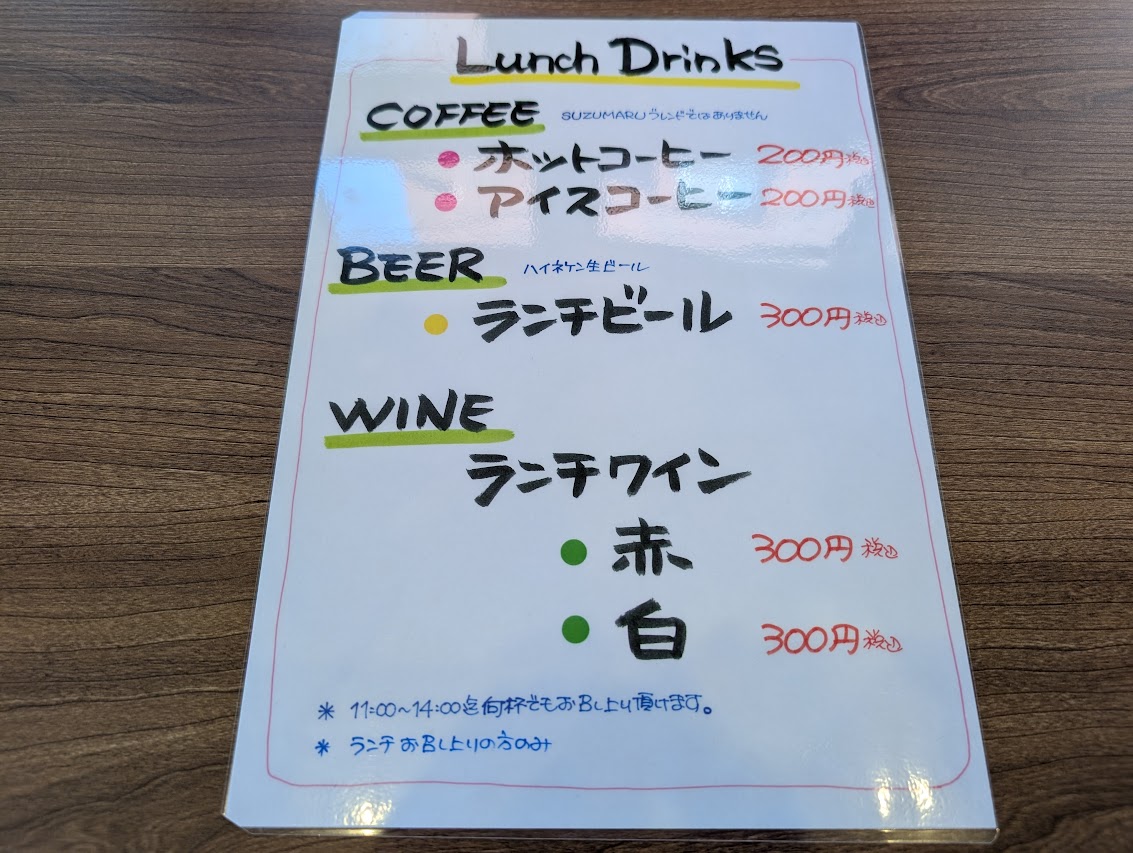 Lunch Drinks
COFFEE SUZUMARUブレンドではありません
ホットコーヒー 200円税込
アイスコーヒー 200円税込
BEER ハイネケン生ビール
ランチビール 300円税込
WINE
ランチワイン
赤 300円税込
白 300円税込
* 11:00~14:00迄何杯でもお召し上り頂けます。
* ランチお召し上りの方のみ